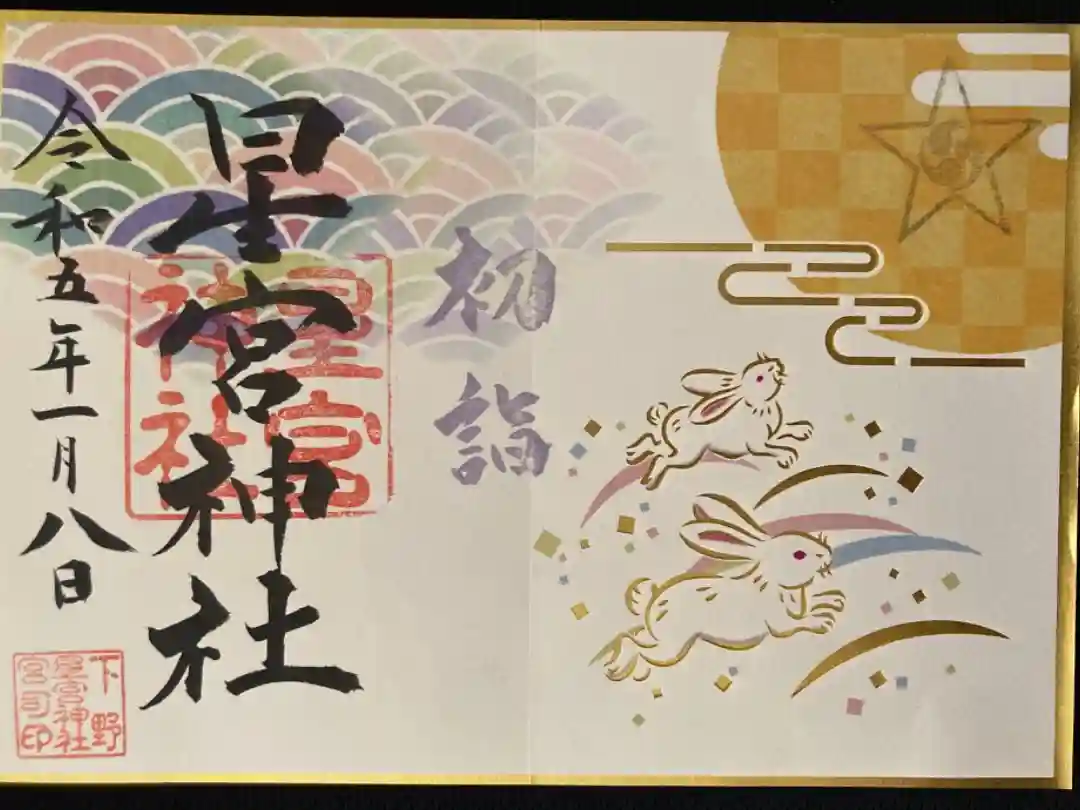 初詣
星宮神社
星宮
神社
令和五年一月八日
下野
星宮神社
宮司印